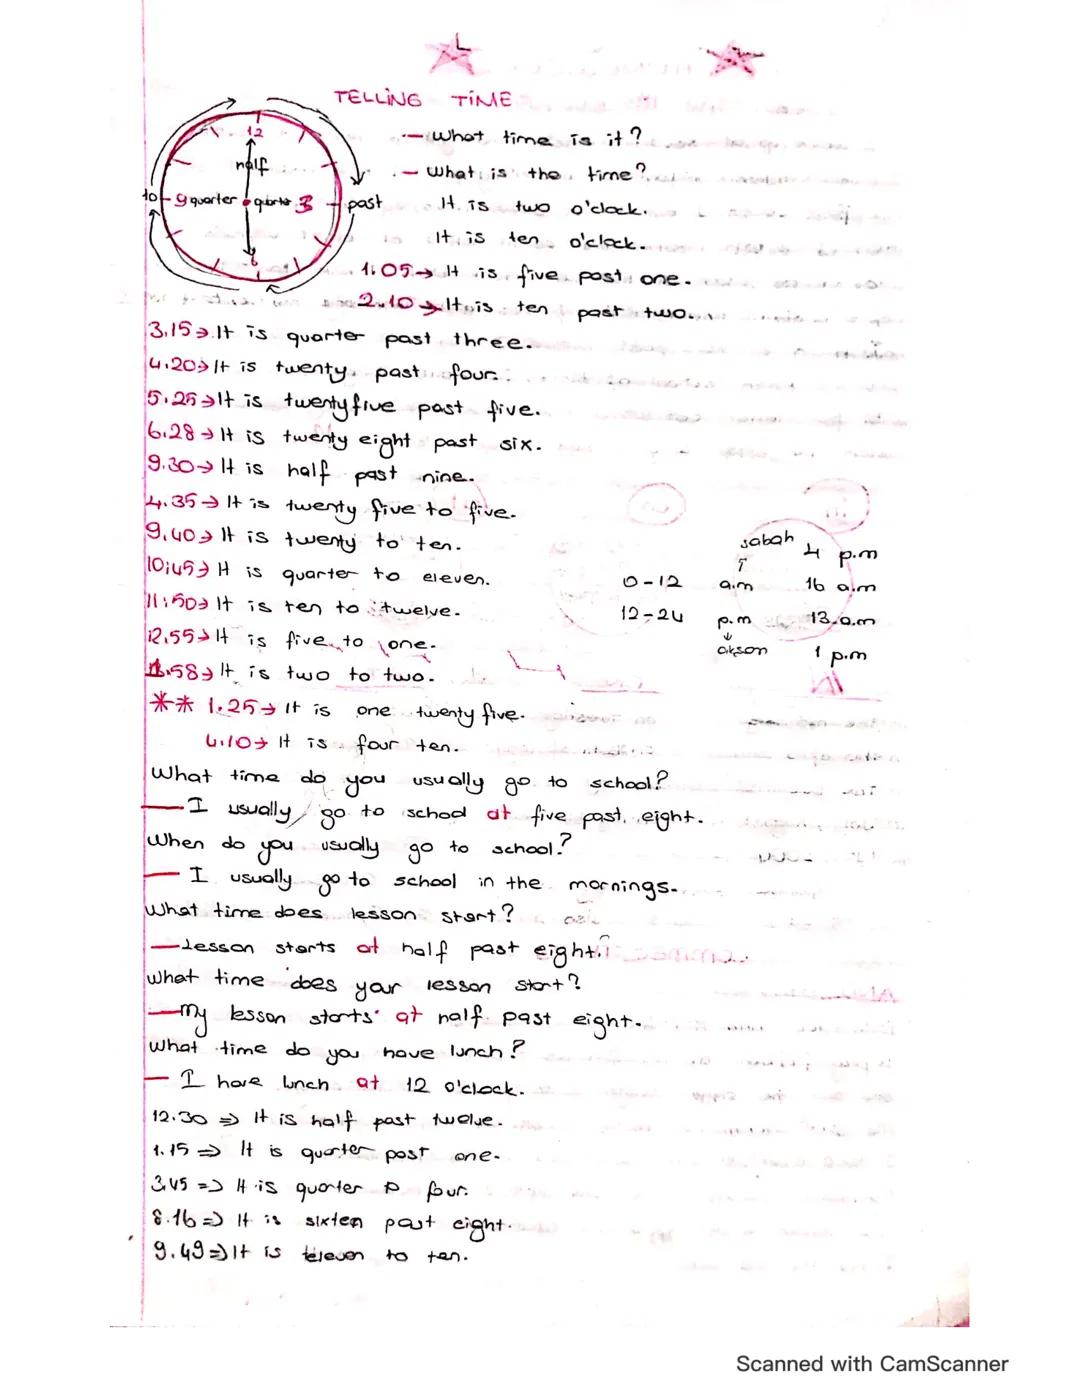 TELLİNG TİME
12
half
10 9 quarter quarter 3 past
6
- What time is it?
- What is the time?
It is two o'clock.
It is ten o'clock.
1.05→ It is five past one.
2.10→ It is ten past two.
3.15→ It is quarter past three.
4.20→ It is twenty past four.
5.25→ It is twentyfive past five.
6.28→ It is twenty eight past six.
9.30→ It is half past nine.
4.35→ It is twenty five to five.
9.40→ It is twenty to ten.
10:45→ It is quarter to eleven.
11:50→ It is ten to twelve.
12.55→ It is five to one.
1.58→ It is two to two.
** 1.25→ It is one twenty five.
4.10→ It is four ten.
sabah 4 p.m
0-12 a.m 16 a.m
12-24 p.m 13.a.m
akşam 1 p.m
What time do you usually go to school?
— I usually go to school at five past eight.
When do you usually go to school?
— I usually go to school in the mornings.
What time does lesson start?
— Lesson starts at half past eight.
What time does your lesson start?
— My lesson starts at half past eight.
What time do you have lunch?
— I have lunch at 12 o'clock.
12.30 ⇒ It is half past twelve.
1.15 ⇒ It is quarter past one.
3.45 ⇒ It is quarter four.
8.16 ⇒ It is sixten past eight.
9.49 ⇒ It is to ten.
Scanned with CamScanner